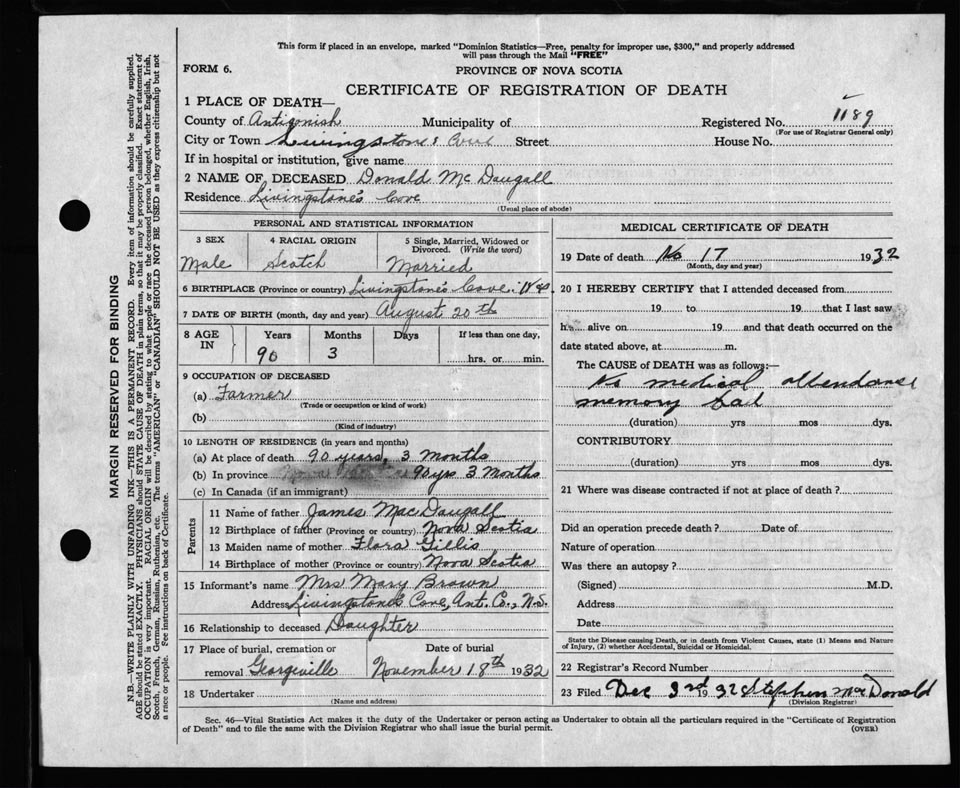 This form if placed in an envelope, marked "Dominion Statistics—Free, penalty for improper use, $300," and properly addressed
will pass through the Mail "FREE"
FORM 6.
PROVINCE OF NOVA SCOTIA
CERTIFICATE OF REGISTRATION OF DEATH
1 PLACE OF DEATH—
County of Antigonish Municipality of Registered No. 1189
(For use of Registrar General only)
City or Town Livingstone's Cove Street House No.
If in hospital or institution, give name
2 NAME OF DECEASED Donald McDougall
Residence Livingstone's Cove
(Usual place of abode)
PERSONAL AND STATISTICAL INFORMATION
3 SEX 4 RACIAL ORIGIN 5 Single, Married, Widowed or Divorced. (Write the word)
Male Scotch Married
6 BIRTHPLACE (Province or country) Livingstone's Cove. N.S.
7 DATE OF BIRTH (month, day and year) August 20th
8 AGE IN Years Months Days If less than one day,
90 3 hrs. or min.
9 OCCUPATION OF DECEASED
(a) Farmer
(Trade or occupation or kind of work)
(b)
(Kind of industry)
10 LENGTH OF RESIDENCE (in years and months)
(a) At place of death 90 years, 3 months
(b) In province 90 yrs 3 Months
(c) In Canada (if an immigrant)
Parents
11 Name of father James MacDougall
12 Birthplace of father (Province or country) Nova Scotia
13 Maiden name of mother Flora Gillis
14 Birthplace of mother (Province or country) Nova Scotia
15 Informant's name Mrs Mary Brown
Address Livingstones Cove, Ant. Co., N.S.
16 Relationship to deceased Daughter
17 Place of burial, cremation or Date of burial
removal Georgeville November 18th 1932
18 Undertaker
(Name and address)
MEDICAL CERTIFICATE OF DEATH
19 Date of death No 17 1932
(Month, day and year)
20 I HEREBY CERTIFY that I attended deceased from
19 to 19 that I last saw
h alive on 19 and that death occurred on the
date stated above, at m.
The CAUSE of DEATH was as follows:—
No medical attendance
memory bad
(duration) yrs mos dys.
CONTRIBUTORY
(duration) yrs mos dys.
21 Where was disease contracted if not at place of death?
Did an operation precede death? Date of
Nature of operation
Was there an autopsy?
(Signed) M.D.
Address
Date
State the Disease causing Death, or in death from Violent Causes, state (1) Means and Nature
of Injury, (2) whether Accidental, Suicidal or Homicidal.
22 Registrar's Record Number
23 Filed Dec 3rd 1932 Stephen MacDonald
(Division Registrar)
Sec. 46—Vital Statistics Act makes it the duty of the Undertaker or person acting as Undertaker to obtain all the particulars required in the "Certificate of Registration
of Death" and to file the same with the Division Registrar who shall issue the burial permit.
(OVER)
MARGIN RESERVED FOR BINDING
N.B.—WRITE PLAINLY WITH UNFADING INK—THIS IS A PERMANENT RECORD. Every item of information should be carefully supplied.
AGE should be stated EXACTLY. PHYSICIANS should STATE CAUSE OF DEATH in plain terms, so that it may be properly classified. Exact statement of
OCCUPATION is very important. RACIAL ORIGIN will be described by stating to what people or race the deceased person belonged, whether English, Irish,
Scotch, French, German, Russian, Ruthenian, etc. The terms "AMERICAN" or "CANADIAN" SHOULD NOT BE USED as they express citizenship but not
a race or people. See instructions on back of Certificate.